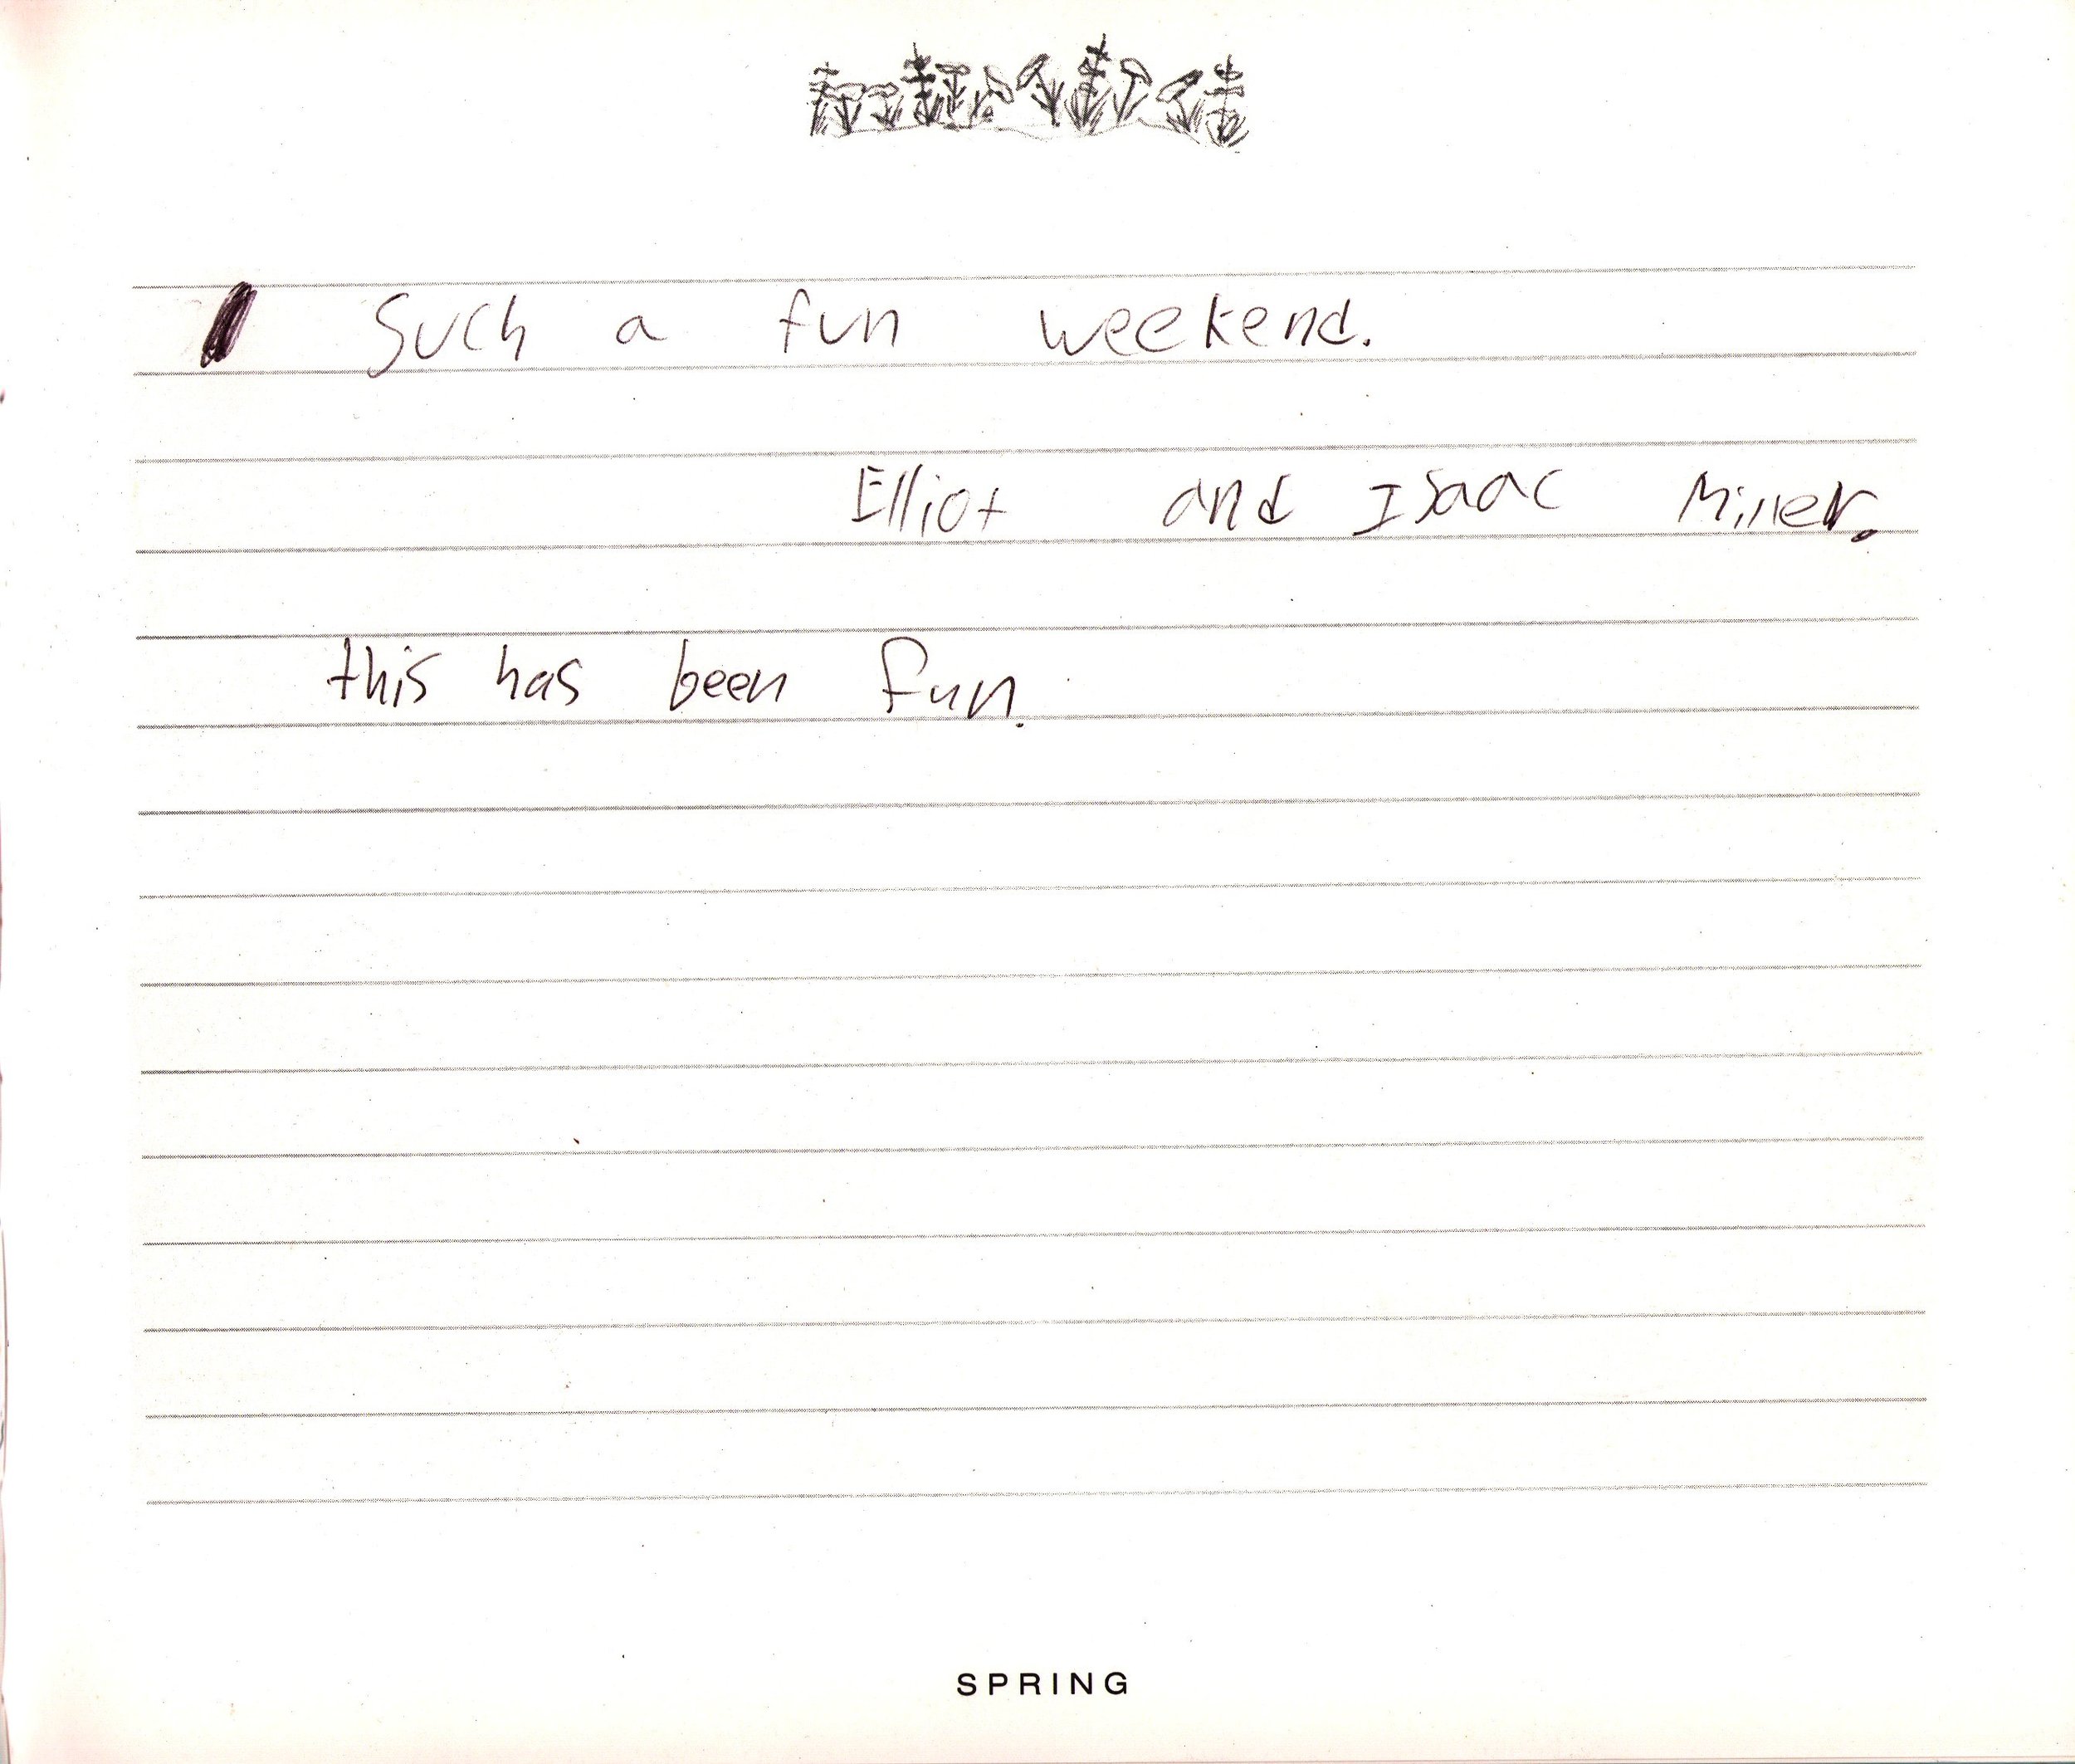 Such a fun weekend.
Elliot and Isaac Miller.
this has been fun.
SPRING